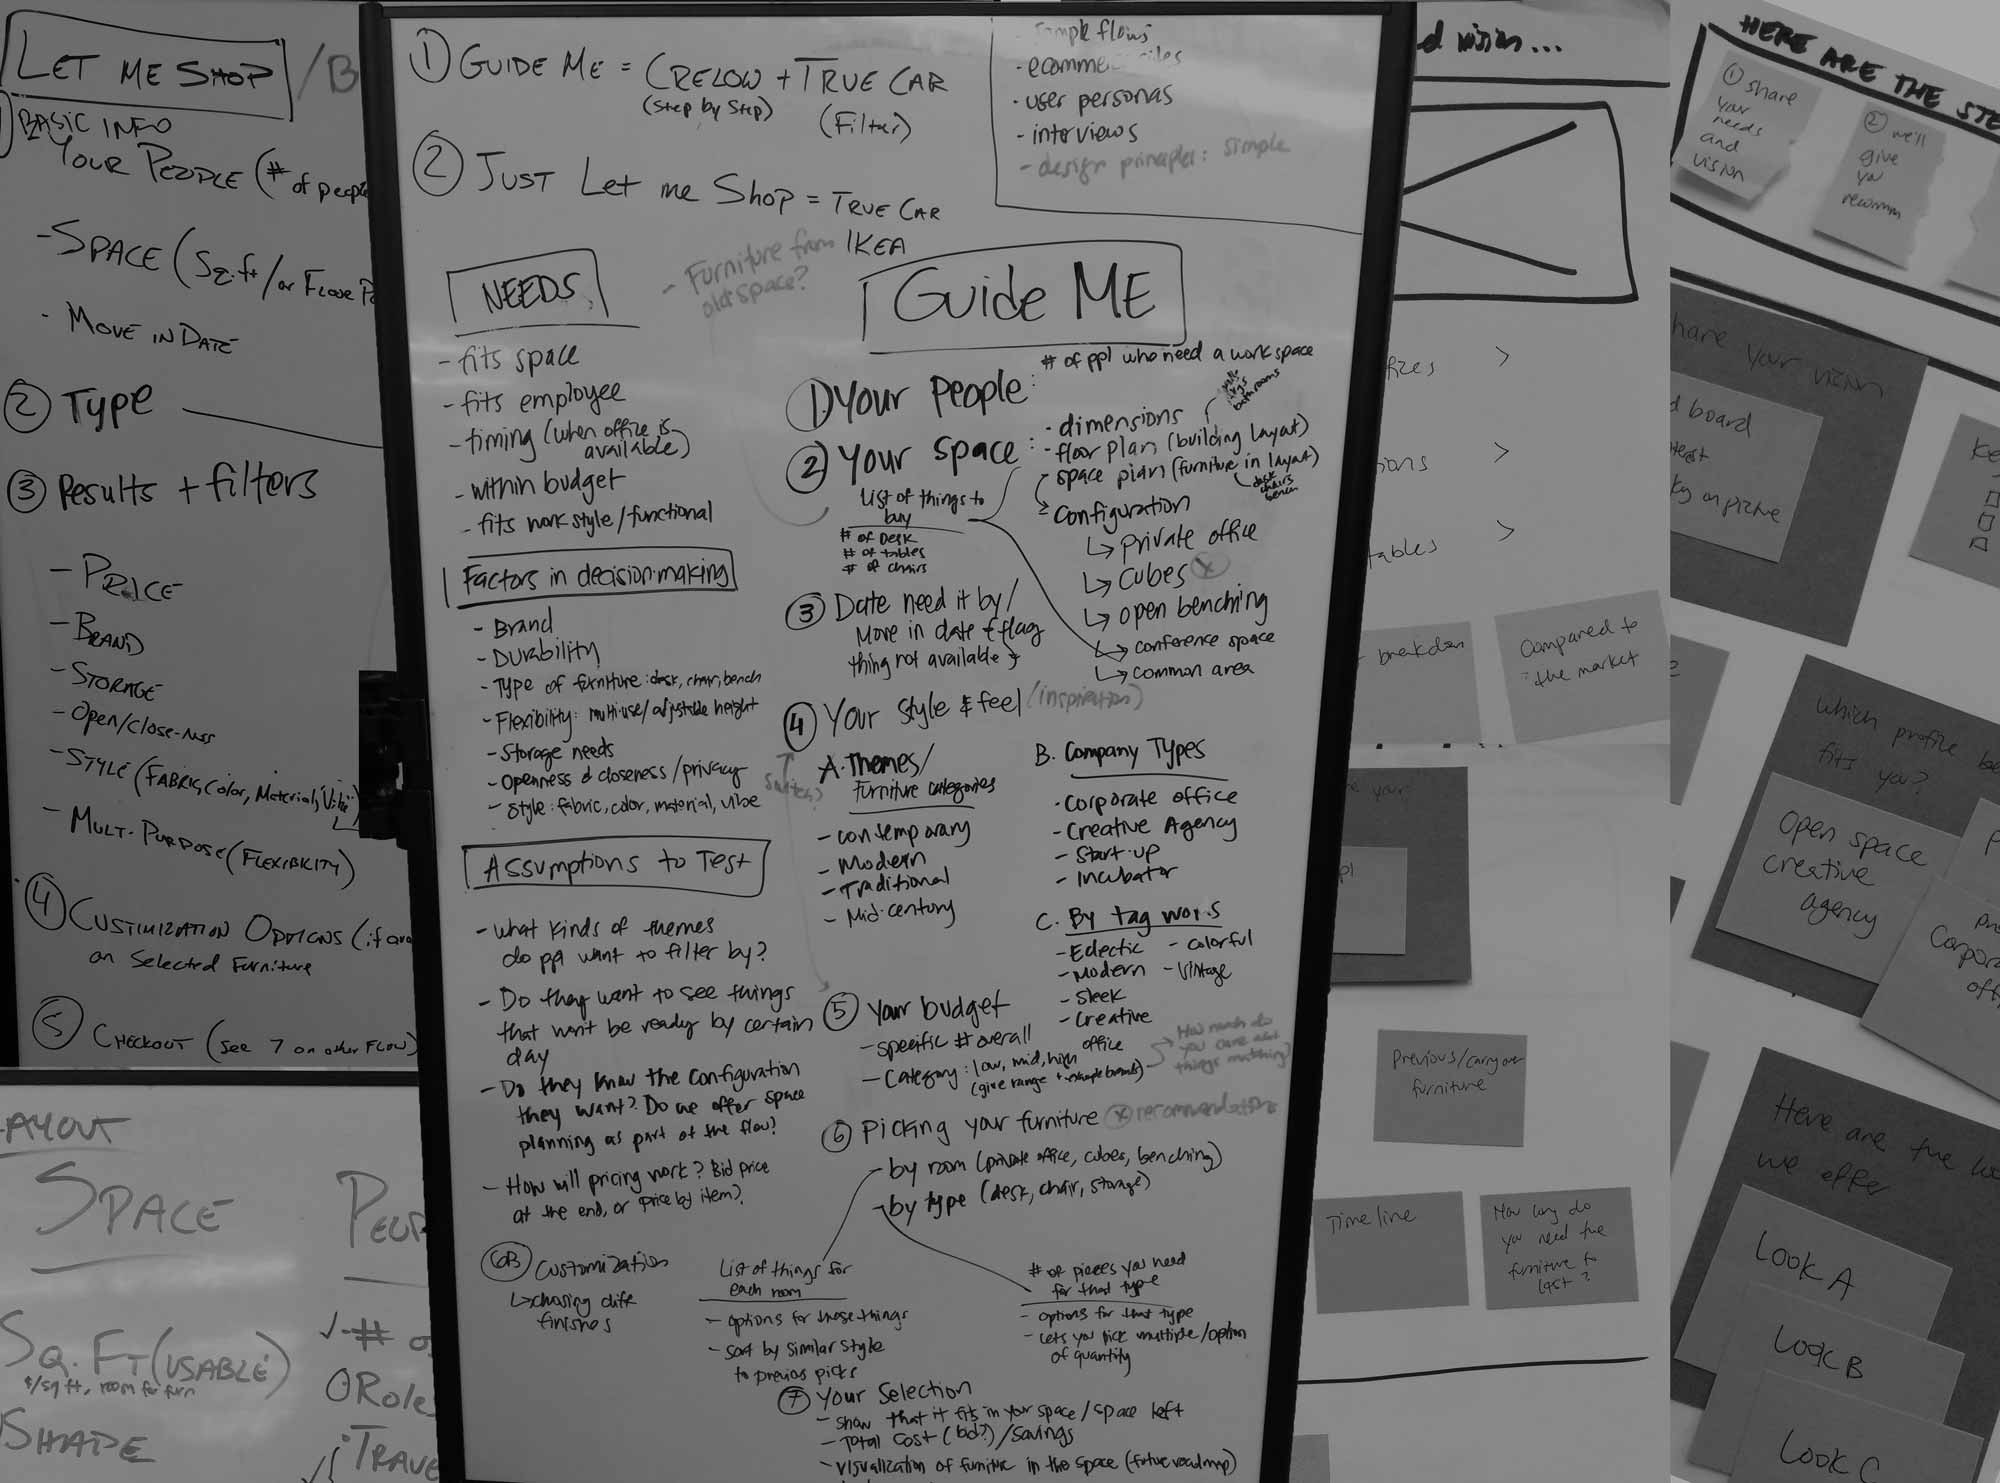 LET ME SHOP / B
1 BASIC INFO
YOUR PEOPLE (# of people
- SPACE (SQ. ft / or FLOOR
- MOVE IN DATE
2 Type
3 Results + filters
- PRICE
- BRAND
- STORAGE
- Open/Close-ness
- STYLE (FABRIC, Color, Material, Vibe)
- MULT-PURPOSE (FLEXIBILITY)
4 CUSTIMIZATION OPTIONS (if
on Selected Furniture
5 CHECKOUT (see 7 on other FLOW)
LAYOUT
SPACE
SQ. FT (USABLE)
$/sq ft, room for furn
SHAPE
- #
Roles
1 GUIDE ME = CRELOW + TRUE CAR
(Step by Step) (Filter)
2 JUST Let me Shop = TRUE CAR
IKEA
- sample flows
- ecommerce
- user personas
- interviews
- design principles: simple
- Furniture from
old space?
NEEDS
- fits space
- fits employee
- timing (when office is
available)
- within budget
- fits work style/functional
Factors in decision-making
- Brand
- Durability
- Type of furniture: desk, chair, bench
- Flexibility: multi-use/adjustable height
- Storage needs
- Openness & closeness/privacy
- Style: fabric, color, material, vibe
Assumptions to Test
- What kinds of themes
do ppl want to filter by?
- Do they want to see things
that won't be ready by certain
day
- Do they know the configuration
they want? Do we offer space
planning as part of the flow?
- How will pricing work? Bid price
at the end, or price by item?
6B Customization
↳ choosing diff
finishes
Guide ME
1) Your People: # of ppl who need a workspace
2 Your space: - dimensions
- floor plan (building layout)
bathrooms
- space plan (furniture in layout)
desk
chairs
bench
List of things to
buy
# of Desk
# of tables
# of chairs
Configuration
↳ private office
↳ cubes x
↳ open benching
↳ conference space
↳ common area
3 Date need it by/
Move in date & flag
thing not available
4 Your Style & feel (inspiration)
switch?
A. Themes/
Furniture categories
- contemporary
- Modern
- Traditional
- Mid-century
B. Company Types
- Corporate office
- Creative Agency
- Start-up
- Incubator
C. By tag words
- Eclectic - colorful
- Modern - Vintage
- Sleek
- Creative
5 Your budget
- specific # overall
- Category: low, mid, high office
(give range + example brands)
How much do
you care about
things matching
6 Picking your furniture x recommendations
- by room (private office, cubes, benching)
- by type (desk, chair, storage)
List of things for
each room
- options for those things
- sort by similar style
to previous picks
# of pieces you need
for that type
- options for that type
- Lets you pick multiple/option
of quantity
7 Your Selection
- show that it fits in your space/space left
- Total cost (bid?)/savings
- Visualization of furniture in the space (future roadmap)
d vision...
>
>
tables >
breakdown
Compared to
the market
Previous/carryover
furniture
Timeline
How long do
you need the
furniture to
last?
HERE ARE THE STE
1 share
your
needs
and
vision
2 we'll
give
you
recomm
share your vision
board
Which profile be
fits you?
Open space
creative
agency
Here are the
we offer
Look A
Look B
Look C